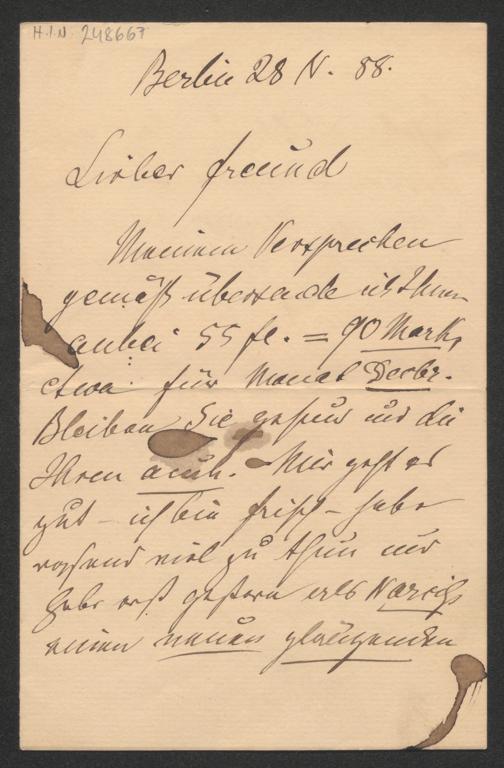 H.I.N. 248667
Berlin 28 N. 88.
Lieber Freund
Meinem Versprechen
gemäß übersende ich Ihnen
anbei 55 fl. = 90 Mark,
etwa für Monat Decbr.
Bleiben Sie gesund und die
Ihren auch. Mir geht es
gut – ich bin frisch – habe
rasend viel zu thun und
habe erst gestern als Narciß
einen neuen glänzenden